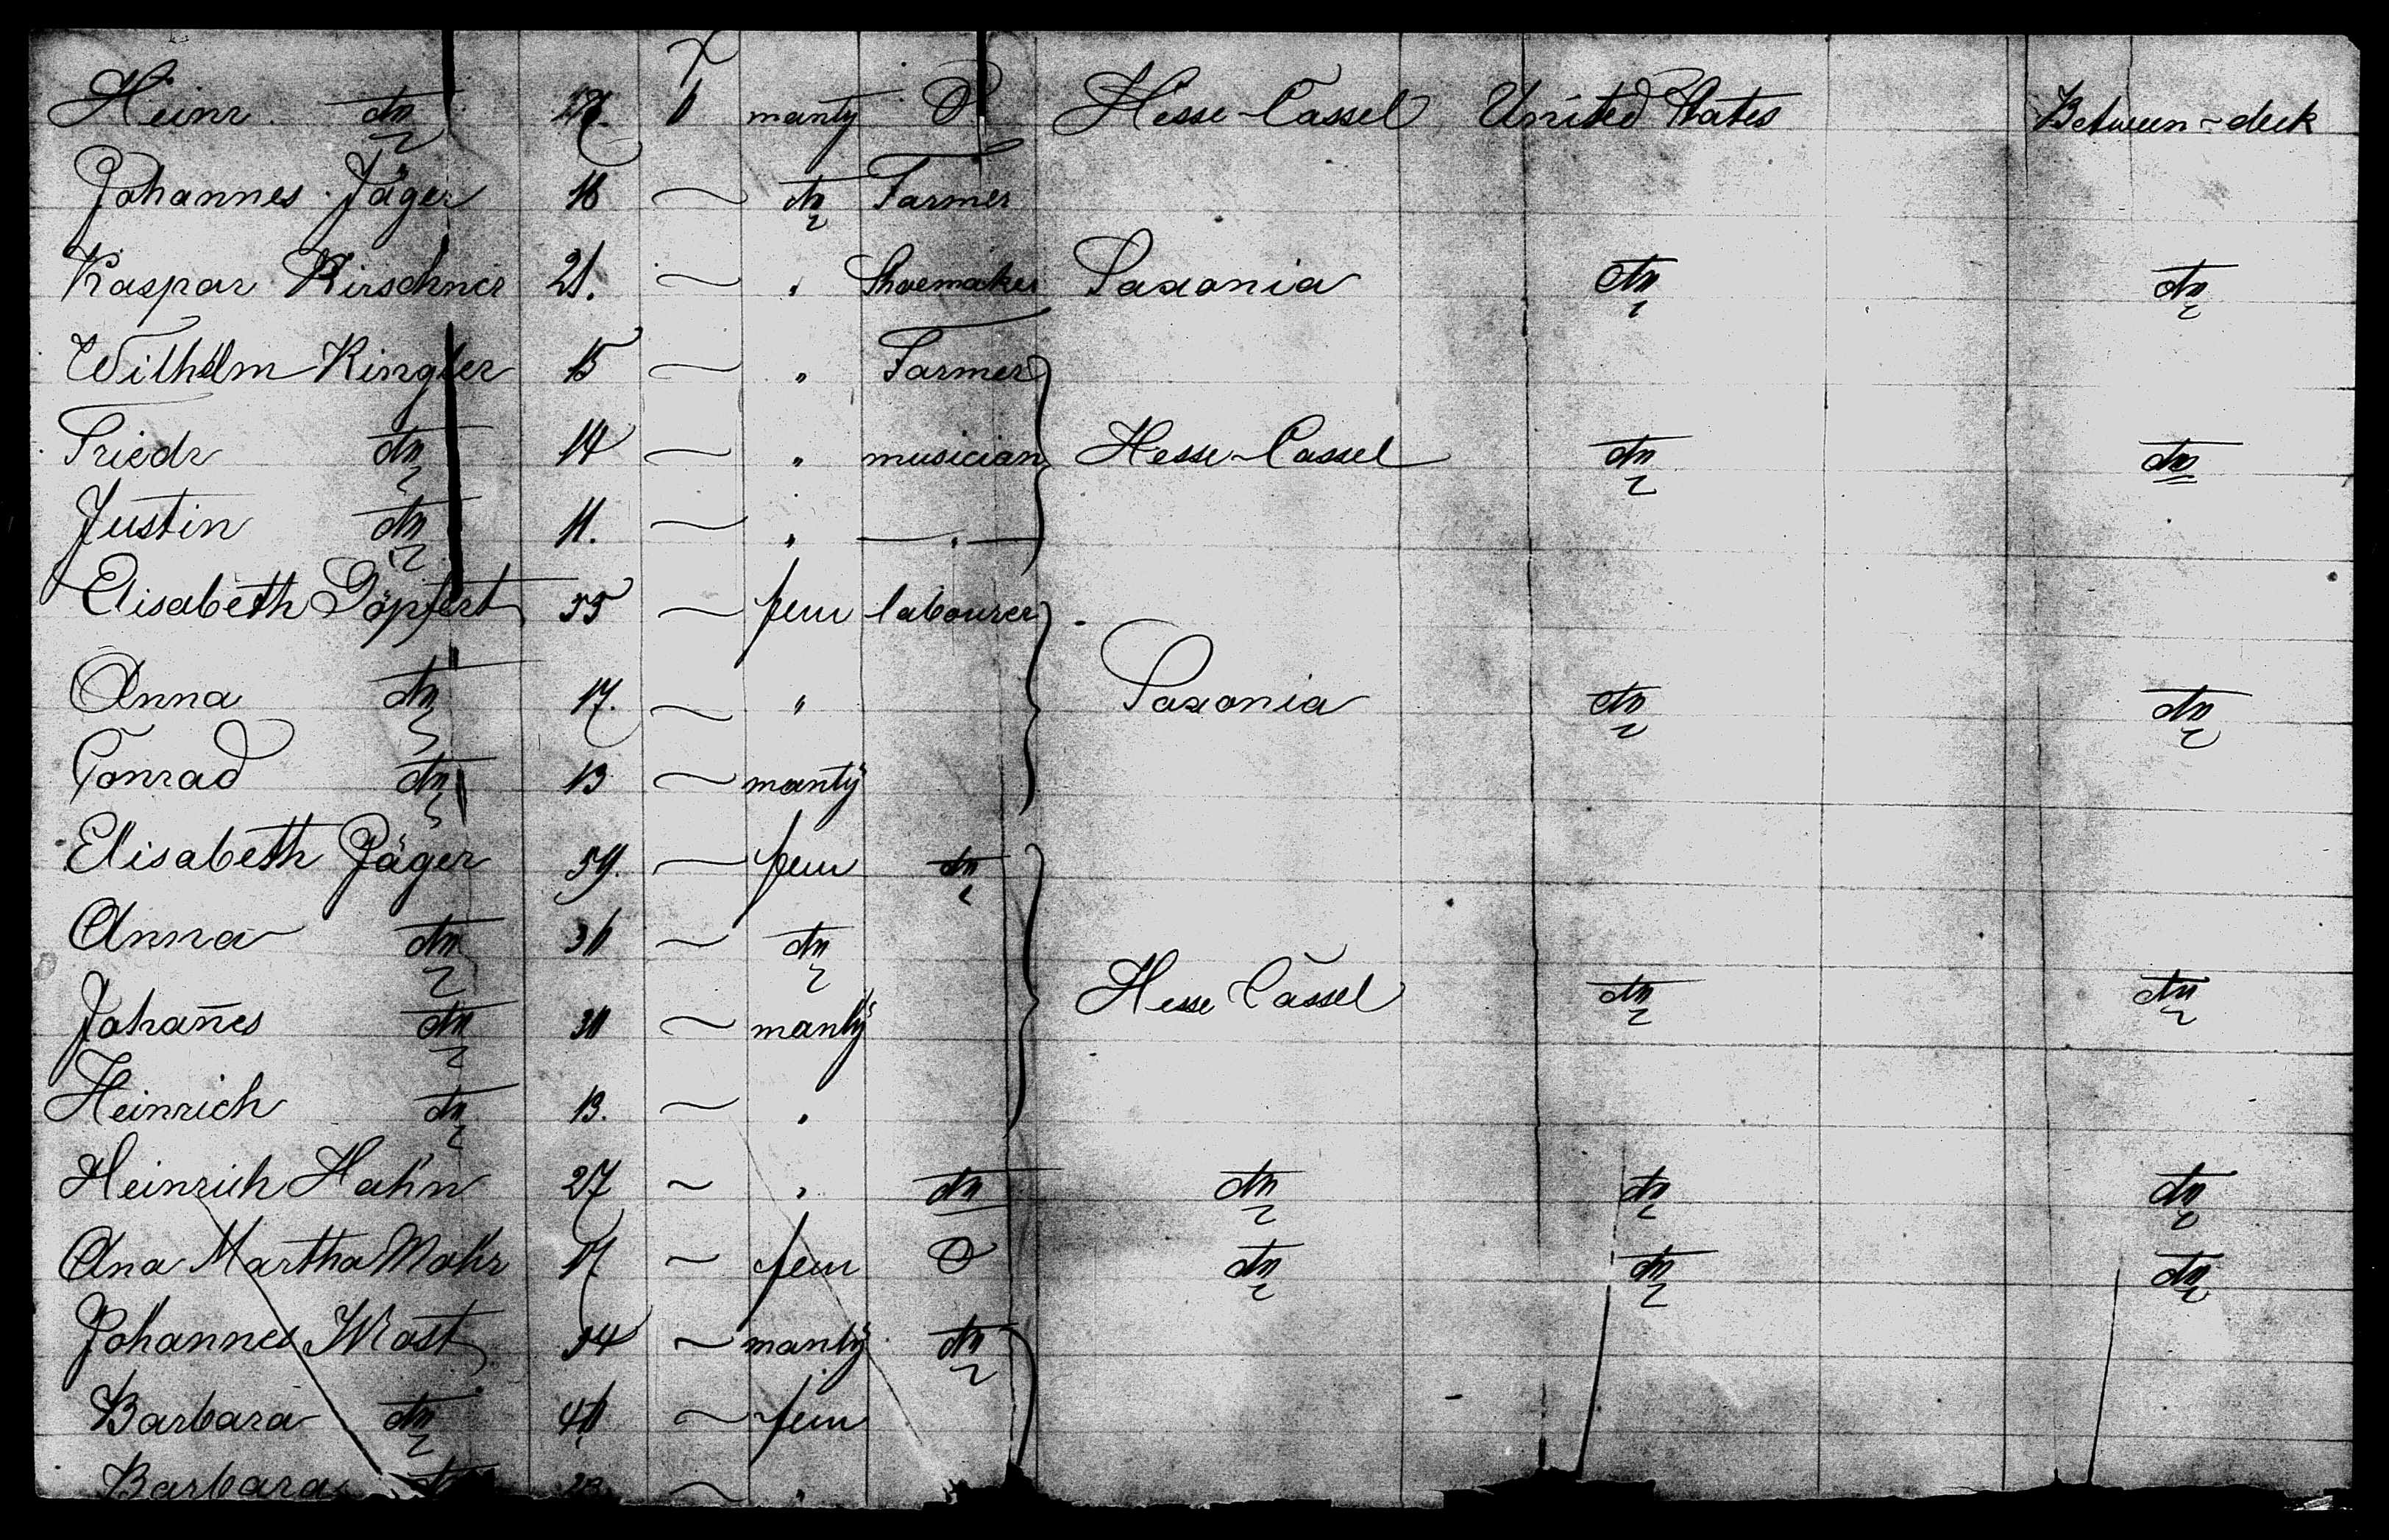 Heinr do 27. manly Hesse-Cassel United States Between-deck
Johannes Jäger 18 do Farmer
Kaspar Kirschner 21. " Shoemaker Saxonia do do
Wilhelm Ringler 15 " Farmer
Friedr do 14 " musician Hesse-Cassel do do
Justin do 11. " "
Elisabeth Göpfert 55 fem labourer
Anna do 17. " Saxonia do do
Conrad do 13 manly
Elisabeth Jäger 59. fem do
Anna do do
Johañes do manly Hesse Cassel do do
Heinrich do 13. "
Heinrich Hahn 27 " do do do do
Ana Martha Mohr 17 fem do do do
Johannes Most 54 manly do
Barbara do fem
Barbara do 23. "